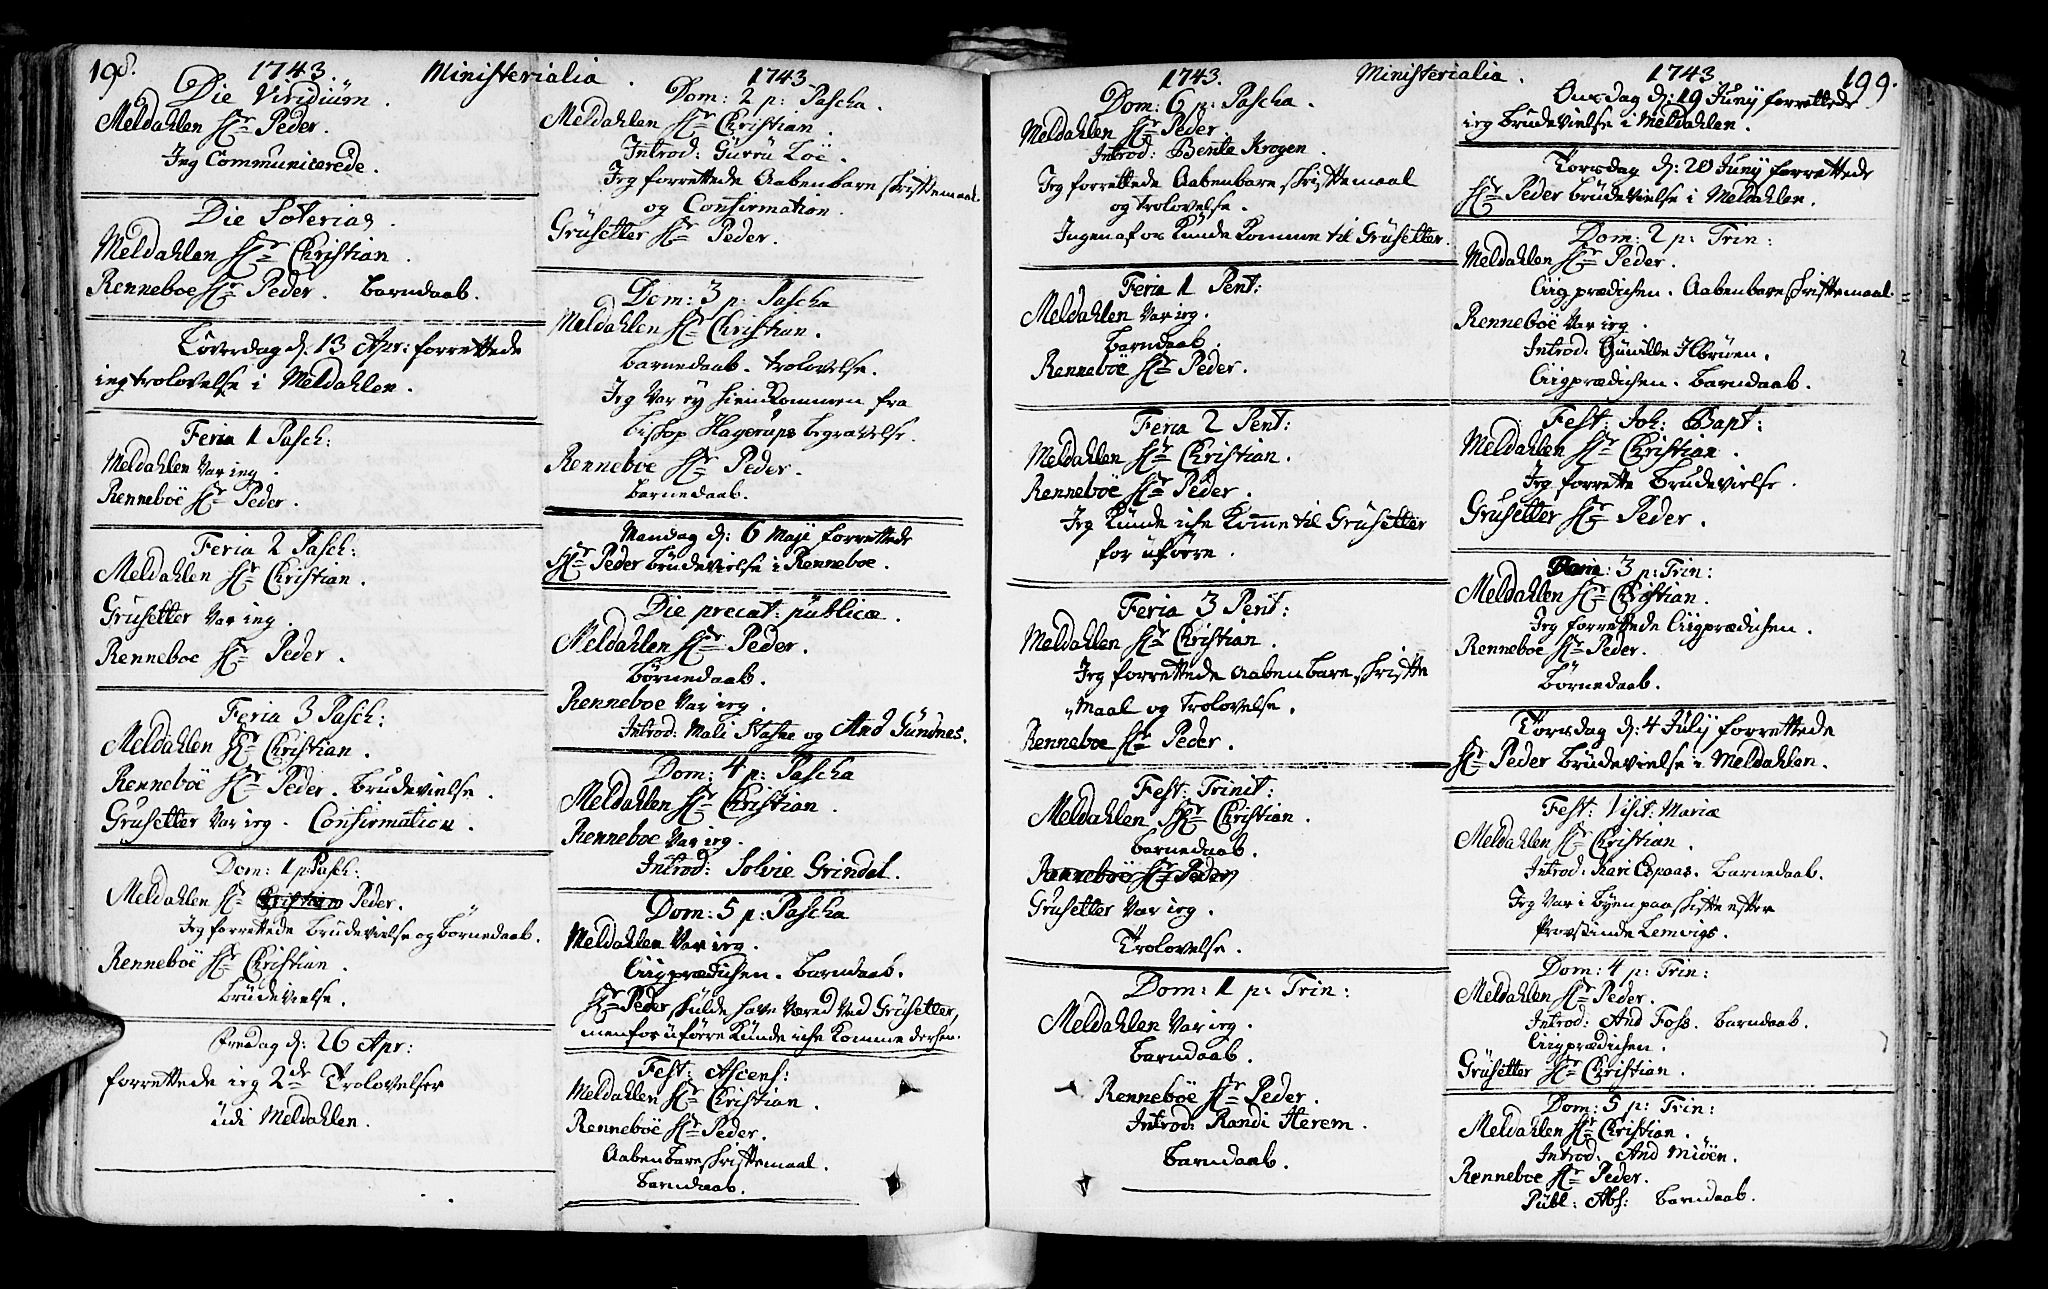 198.
1743. Ministerialia. 1743
Die Viridiüm.
Meldahlen Hr Peder.
Jeg Communicerede.
Die Soterias.
Meldahlen Hr Christian.
Renneboe Hr Peder. barndaab.
Løverdag d: 13 Apr: forrettede
ieg trolovelse i Meldahlen.
Feria 1 Pasch:
Meldahlen Var ieg.
Renneböe Hr Peder.
Feria 2 Pasch:
Meldahlen Hr Christian.
Grusetter Var ieg.
Renneboe Hr Peder.
Feria 3 Pasch:
Meldahlen Hr Christian.
Renneböe Hr Peder. brudevielse.
Grusetter Var ieg. Confirmation.
Dom: 1 p: Pasch:
Meldahlen Hr Christian Peder.
Jeg forrettede brudevielse og börnedaab.
Renneböe Hr Christian.
brudevielse.
Fredag d: 26 Apr:
forrettede ieg 2de Trolovelser
udi Meldahlen.
Dom: 2 p: Pascha.
Meldahlen Hr Christian.
Introd: Gürrü Löe.
Jeg forrettede Aabenbare skriftemaal
og Confirmation.
Grüsetter Hr Peder.
Dom: 3 p: Pascha
Meldahlen Hr Christian.
barnedaab. trolovelse.
Jeg Var ey hiemkommen fra
biskop Hagerups begravelse.
Renneboe Hr Peder.
barnedaab.
Mandag d: 6 Maji forrettede
Hr Peder brüdevielse i Renneboe.
Die precat: publicæ.
Meldahlen Hr Peder.
börnedaab.
Renneboe Var ieg.
Introd: Mali Stafne og And Gunnes.
Dom: 4 p: Pascha
Meldahlen Hr Christian.
Renneboe Var ieg.
Introd: Solvie Grindal.
Dom: 5 p: Pascha
Meldahlen Var ieg.
Liigprædichen. barndaab.
Hr Peder skülde have været Ved Grüsetter,
men for uföre Künde iche komme dershen.
Fest: Ascens:
Meldahlen Hr Christian.
Renneböe Hr Peder.
Aabenbare skriftemaal.
barndaab.
1743. Ministerialia. 1743 199.
Dom: 6 p: Pascha.
Meldahlen Hr Peder
Introd: Bente Krogen.
Jeg forrettede Aabenbare skriftemaal
og trolovelse.
Ingen af os Kunde Komme til Grusetter.
Feria 1 Pent:
Meldahlen Var ieg.
barndaab.
Renneböe Hr Peder.
Feria 2 Pent:
Meldahlen Hr Christian.
Renneböe Hr Peder.
Jeg Kunde iche Kom̄e til Grusetter
for uföre.
Feria 3 Pent:
Meldahlen Hr Christian.
Jeg forrettede aabenbare skrifte
maal og trolovelse.
Renneboe Hr Peder.
Fest: Trinit:
Meldahlen Hr Christian.
barnedaab.
Renneböe Hr Peder
Grusetter Var ieg.
Trolovelse.
Dom: 1 p: Trin:
Meldahlen Var ieg.
barndaab.
Renneböe Hr Peder.
Introd: Randi Herem.
barndaab.
Onsdag d: 19 Junij forrettede
ieg brudevielse i Meldahlen.
Torsdag d: 20 Junij forrettede
Hr Peder brudevielse i Meldahlen.
Dom: 2 p: Trin:
Meldahlen Hr Peder.
Liigprædichen. Aabenbare skriftemaal.
Renneböe Var ieg.
Introd: Gunilde Ilbrüen.
Liigprædichen. barndaab.
Fest: Joh: Bapt:
Meldahlen Hr Christian.
Jeg forrette brudevielse.
Grusetter Hr Peder.
Dom: 3 p: Trin:
Meldahlen Hr Christian.
Jeg forrettede Liigprædichen.
Renneboe Hr Peder.
börnedaab.
Torsdag d: 4 Julij forrettede
Hr Peder brüdevielse i Meldahlen.
Fest: Visit: Mariæ
Meldahlen Hr Christian.
Introd: Kari Espaas. barnedaab.
Jeg Var i byen paa skifte efter
Provstinde Lemvigs.
Dom: 4 p: Trin:
Meldahlen Hr Peder.
Introd: And Foss. barndaab.
Liigprædichen.
Grüsetter Hr Christian.
Dom: 5 p: Trin:
Meldahlen Hr Christian.
Introd: And Miöen.
Renneboe Hr Peder.
Publ: Abs: barndaab.